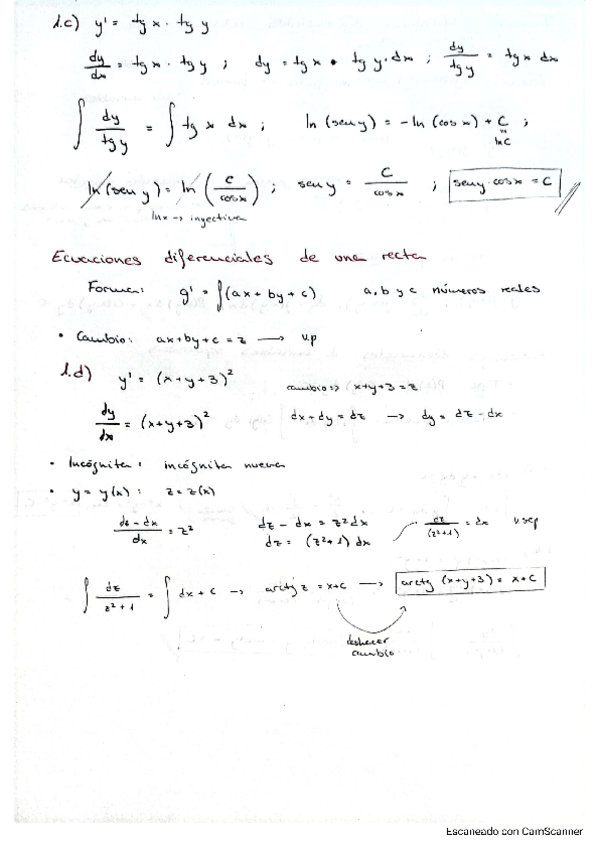 1.c) y' = tg x · tg y
dy/dx = tg x · tg y ; dy = tg x · tg y · dx ; dy/tg y = tg x dx
∫ dy/tg y = ∫ tg x dx ; ln (sen y) = -ln (cos x) + C ;
ln C
ln (sen y) = ln (C/cos x) ; sen y = C/cos x ; sen y · cos x = C
ln x → inyectiva
Ecuaciones diferenciales de una recta
Forma: y' = ∫(ax + by + c) a, b y c números reales
• Cambio: ax + by + c = z → v.p
1.d) y' = (x + y + 3)² cambio => x + y + 3 = z
dy/dx = (x + y + 3)² dx + dy = dz → dy = dz - dx
• Incógnita: incógnita nueva
• y = y(x) : z = z(x)
dz - dx/dx = z² dz - dx = z² dx dz/(z²+1) = dx v.sep
dz = (z² + 1) dx
∫ dz/z² + 1 = ∫ dx + C → arctg z = x + C → arctg (x + y + 3) = x + C
deshacer
cambio
Escaneado con CamScanner